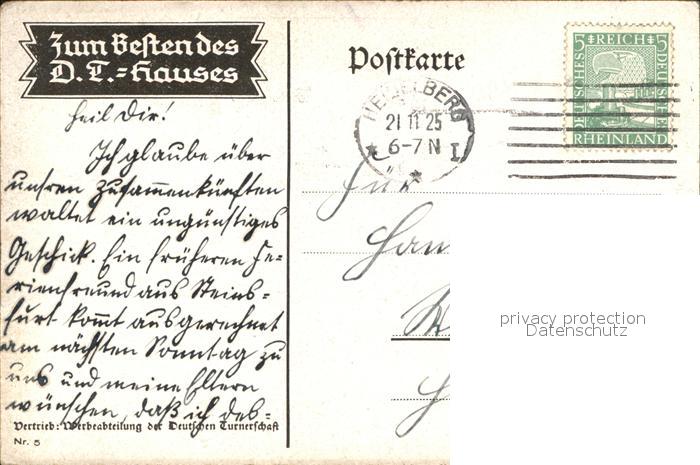 Zum Besten des
D. T.=Hauses
Postkarte
HEIDELBERG
21 11 25
6-7 N
I
5 REICH 5
DEUTSCHES
DEUTSCHES
RHEINLAND
Heil Dir!
Ich glaube über
unsren Zusammenkünften
waltet ein ungünstiges
Geschick. Ein früheren Fe-
rienfreund aus Steins-
furt kommt ausgerechnet
am nächsten Sonntag zu
uns und meine Eltern
wünschen, daß ich des-
Vertrieb: Werbeabteilung der Deutschen Turnerschaft
Nr. 5
Für
privacy protection
Datenschutz